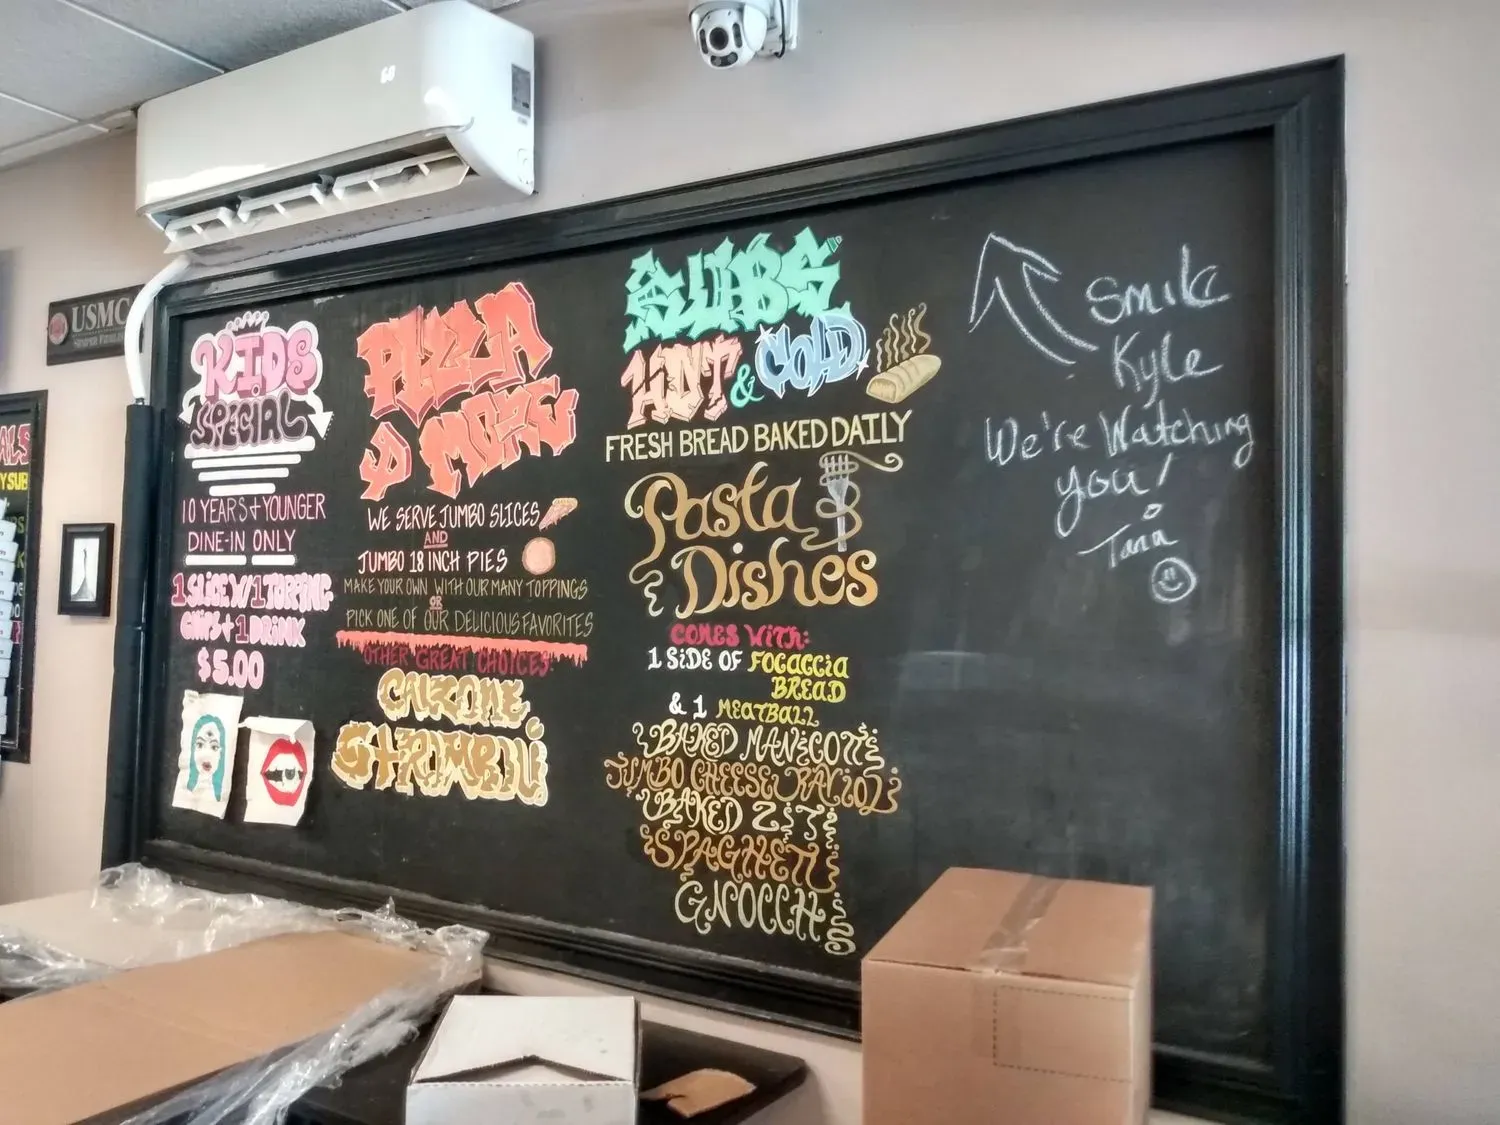 60
USMC
ALS
Y SUB
KIDS
SPECIAL
10 YEARS + YOUNGER
DINE-IN ONLY
1 SLICE W/ 1 TOPPING
CHIPS + 1 DRINK
$5.00
PIZZA
& MORE
WE SERVE JUMBO SLICES
AND
JUMBO 18 INCH PIES
MAKE YOUR OWN WITH OUR MANY TOPPINGS
OR
PICK ONE OF OUR DELICIOUS FAVORITES
OTHER GREAT CHOICES
CALZONE
STROMBOLI
SUBS
HOT & COLD
FRESH BREAD BAKED DAILY
Pasta
Dishes
COMES WITH:
1 SIDE OF FOCACCIA
BREAD
& 1 MEATBALL
BAKED MANICOTTI
JUMBO CHEESE RAVIOLI
BAKED ZITI
SPAGHETTI
GNOCCHI
Smile
Kyle
We're Watching
you!
Tana